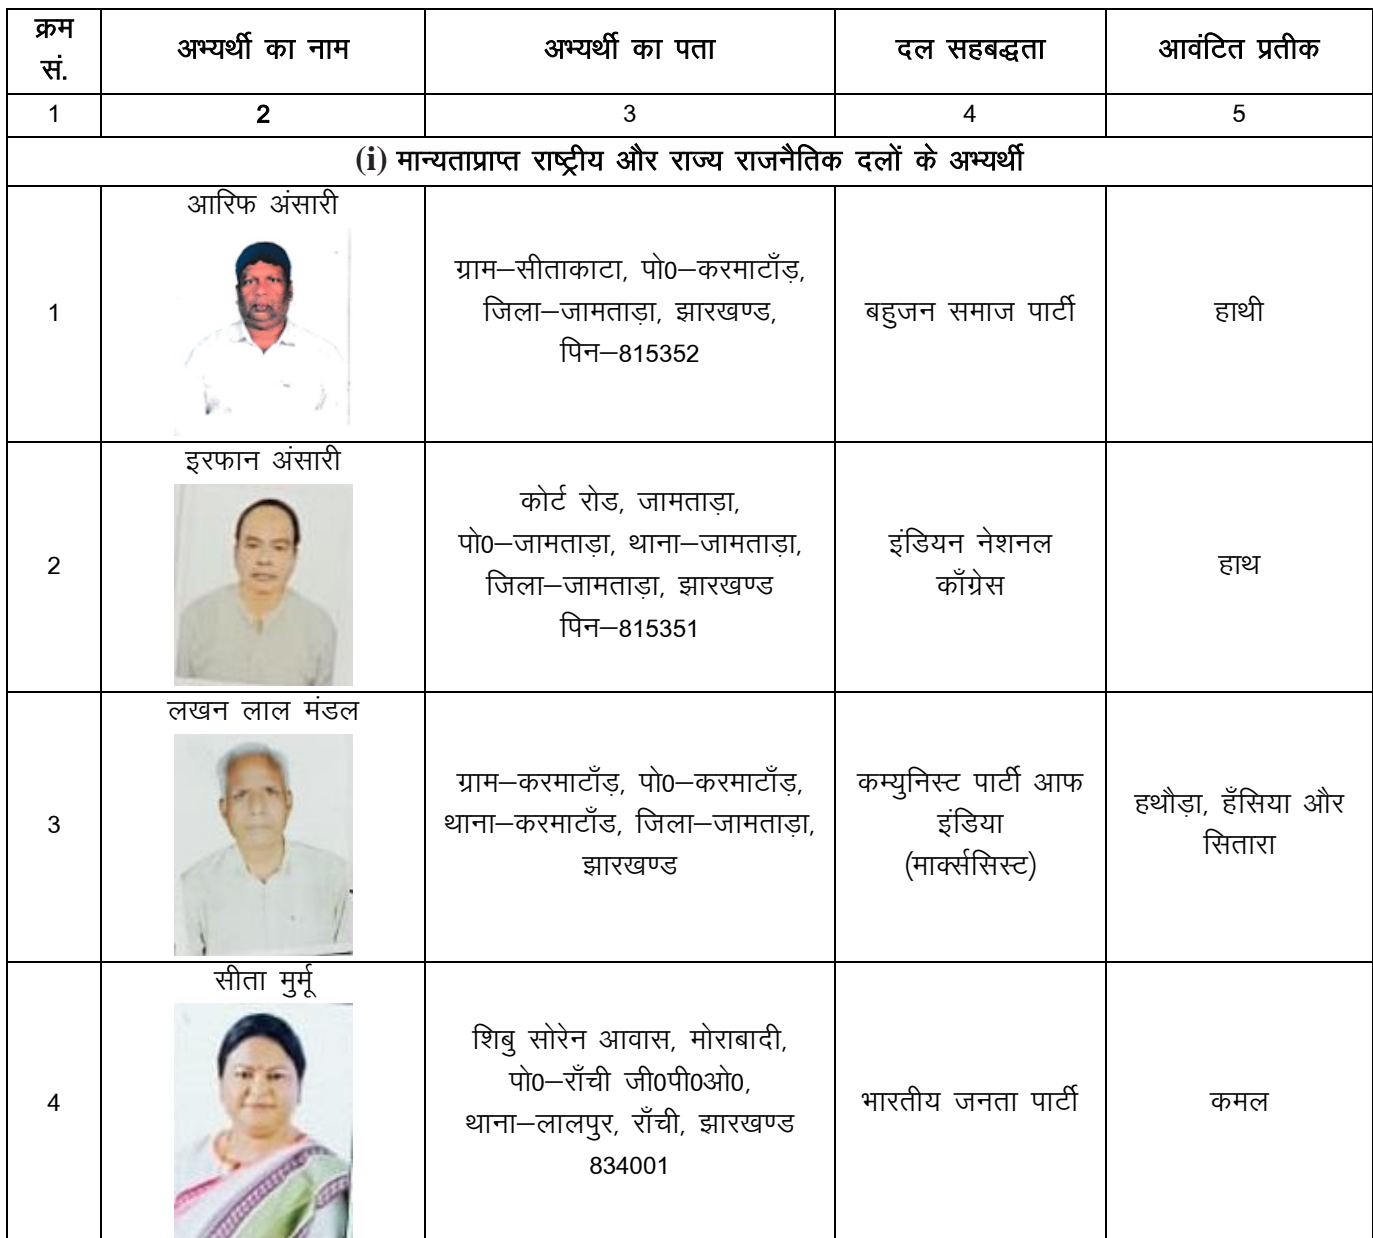 क्रम सं. अभ्यर्थी का नाम अभ्यर्थी का पता दल सहबद्धता आवंटित प्रतीक
1 2 3 4 5
(i) मान्यताप्राप्त राष्ट्रीय और राज्य राजनैतिक दलों के अभ्यर्थी
1
आरिफ अंसारी
ग्राम–सीताकाटा, पो0–करमाटाँड़,
जिला–जामताड़ा, झारखण्ड,
पिन–815352
बहुजन समाज पार्टी
हाथी
2
इरफान अंसारी
कोर्ट रोड, जामताड़ा,
पो0–जामताड़ा, थाना–जामताड़ा,
जिला–जामताड़ा, झारखण्ड
पिन–815351
इंडियन नेशनल
काँग्रेस
हाथ
3
लखन लाल मंडल
ग्राम–करमाटाँड़, पो0–करमाटाँड़,
थाना–करमाटाँड, जिला–जामताड़ा,
झारखण्ड
कम्युनिस्ट पार्टी आफ
इंडिया
(मार्क्ससिस्ट)
हथौड़ा, हँसिया और
सितारा
4
सीता मुर्मू
शिबु सोरेन आवास, मोराबादी,
पो0–राँची जी0पी0ओ0,
थाना–लालपुर, राँची, झारखण्ड
834001
भारतीय जनता पार्टी
कमल